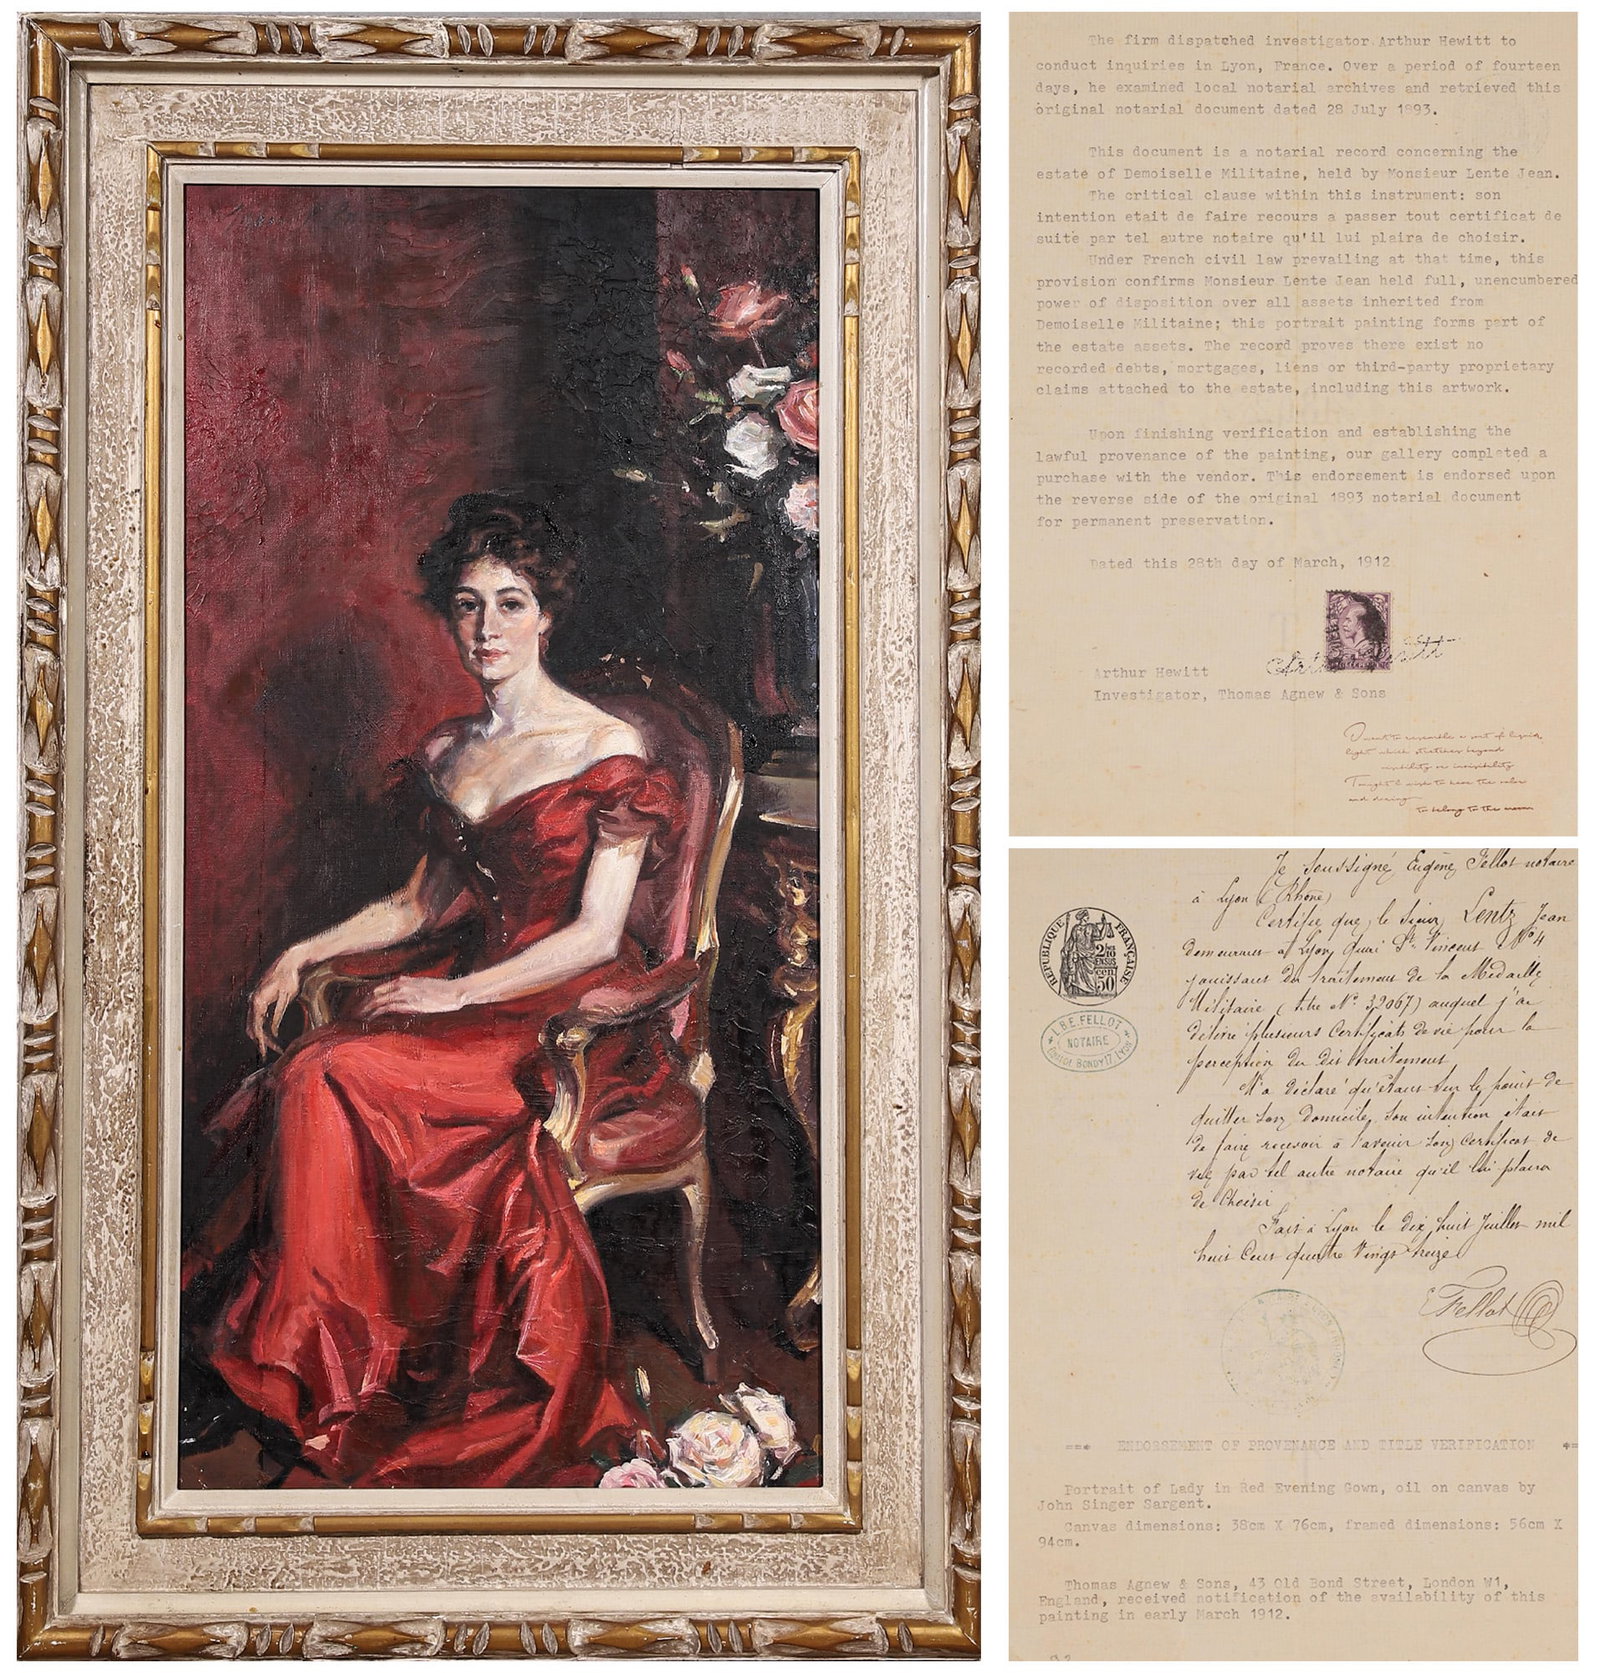 The firm dispatched investigator Arthur Hewitt to
conduct inquiries in Lyon, France. Over a period of fourteen
days, he examined local notarial archives and retrieved this
original notarial document dated 28 July 1893.
This document is a notarial record concerning the
estate of Demoiselle Militaine, held by Monsieur Lente Jean.
The critical clause within this instrument: son
intention etait de faire recours a passer tout certificat de
suite par tel autre notaire qu'il lui plaira de choisir.
Under French civil law prevailing at that time, this
provision confirms Monsieur Lente Jean held full, unencumbered
power of disposition over all assets inherited from
Demoiselle Militaine; this portrait painting forms part of
the estate assets. The record proves there exist no
recorded debts, mortgages, liens or third-party proprietary
claims attached to the estate, including this artwork.
Upon finishing verification and establishing the
lawful provenance of the painting, our gallery completed a
purchase with the vendor. This endorsement is endorsed upon
the reverse side of the original 1893 notarial document
for permanent preservation.
Dated this 28th day of March, 1912
Arthur Hewitt
Investigator, Thomas Agnew & Sons
I want to resemble a sort of liquid
light which stretches beyond
visibility or invisibility
Tonight I wish to have the valor
and daring
to belong to the moon
Je soussigné Eugène Fellot notaire
à Lyon (Rhône)
Certifie que le sieur Lentz Jean
demeurant à Lyon, quai St. Vincent No 4
jouissant du traitement de la Médaille
Militaire (titre No. 39067) auquel j'ai
délivré plusieurs Certificats de vie pour la
perception du dit traitement
M'a déclaré qu'étant sur le point de
quitter son domicile, son intention était
de faire recevoir à l'avenir son Certificat de
vie par tel autre notaire qu'il lui plaira
de Choisir
Fait à Lyon le dix huit Juillet mil
huit Cent quatre Vingt treize
Fellot
RÉPUBLIQUE FRANÇAISE
2/10
EN SUS
50 cen
L.B.E. FELLOT
NOTAIRE
BONDY 17 LYON
=== ENDORSEMENT OF PROVENANCE AND TITLE VERIFICATION ==
Portrait of Lady in Red Evening Gown, oil on canvas by
John Singer Sargent.
Canvas dimensions: 38cm X 76cm, framed dimensions: 56cm X
94cm.
Thomas Agnew & Sons, 43 Old Bond Street, London W1,
England, received notification of the availability of this
painting in early March 1912.